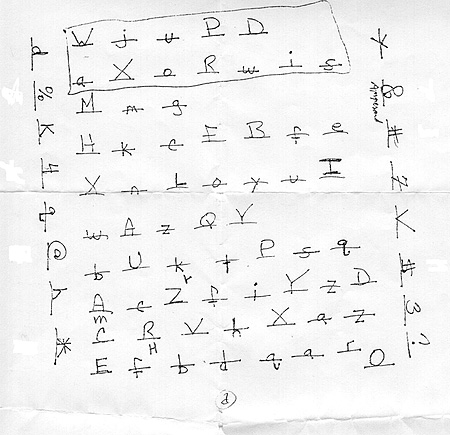 W j u P D
a X o R w i s
M m g
H k c E B f e
X n b o y u H
w A z Q V
b U k t P s q
A c Z f i Y z D
C R V k X a z
E f b d q a r O
d % K 4 @
& # Z V # 3 ?
Ampersand